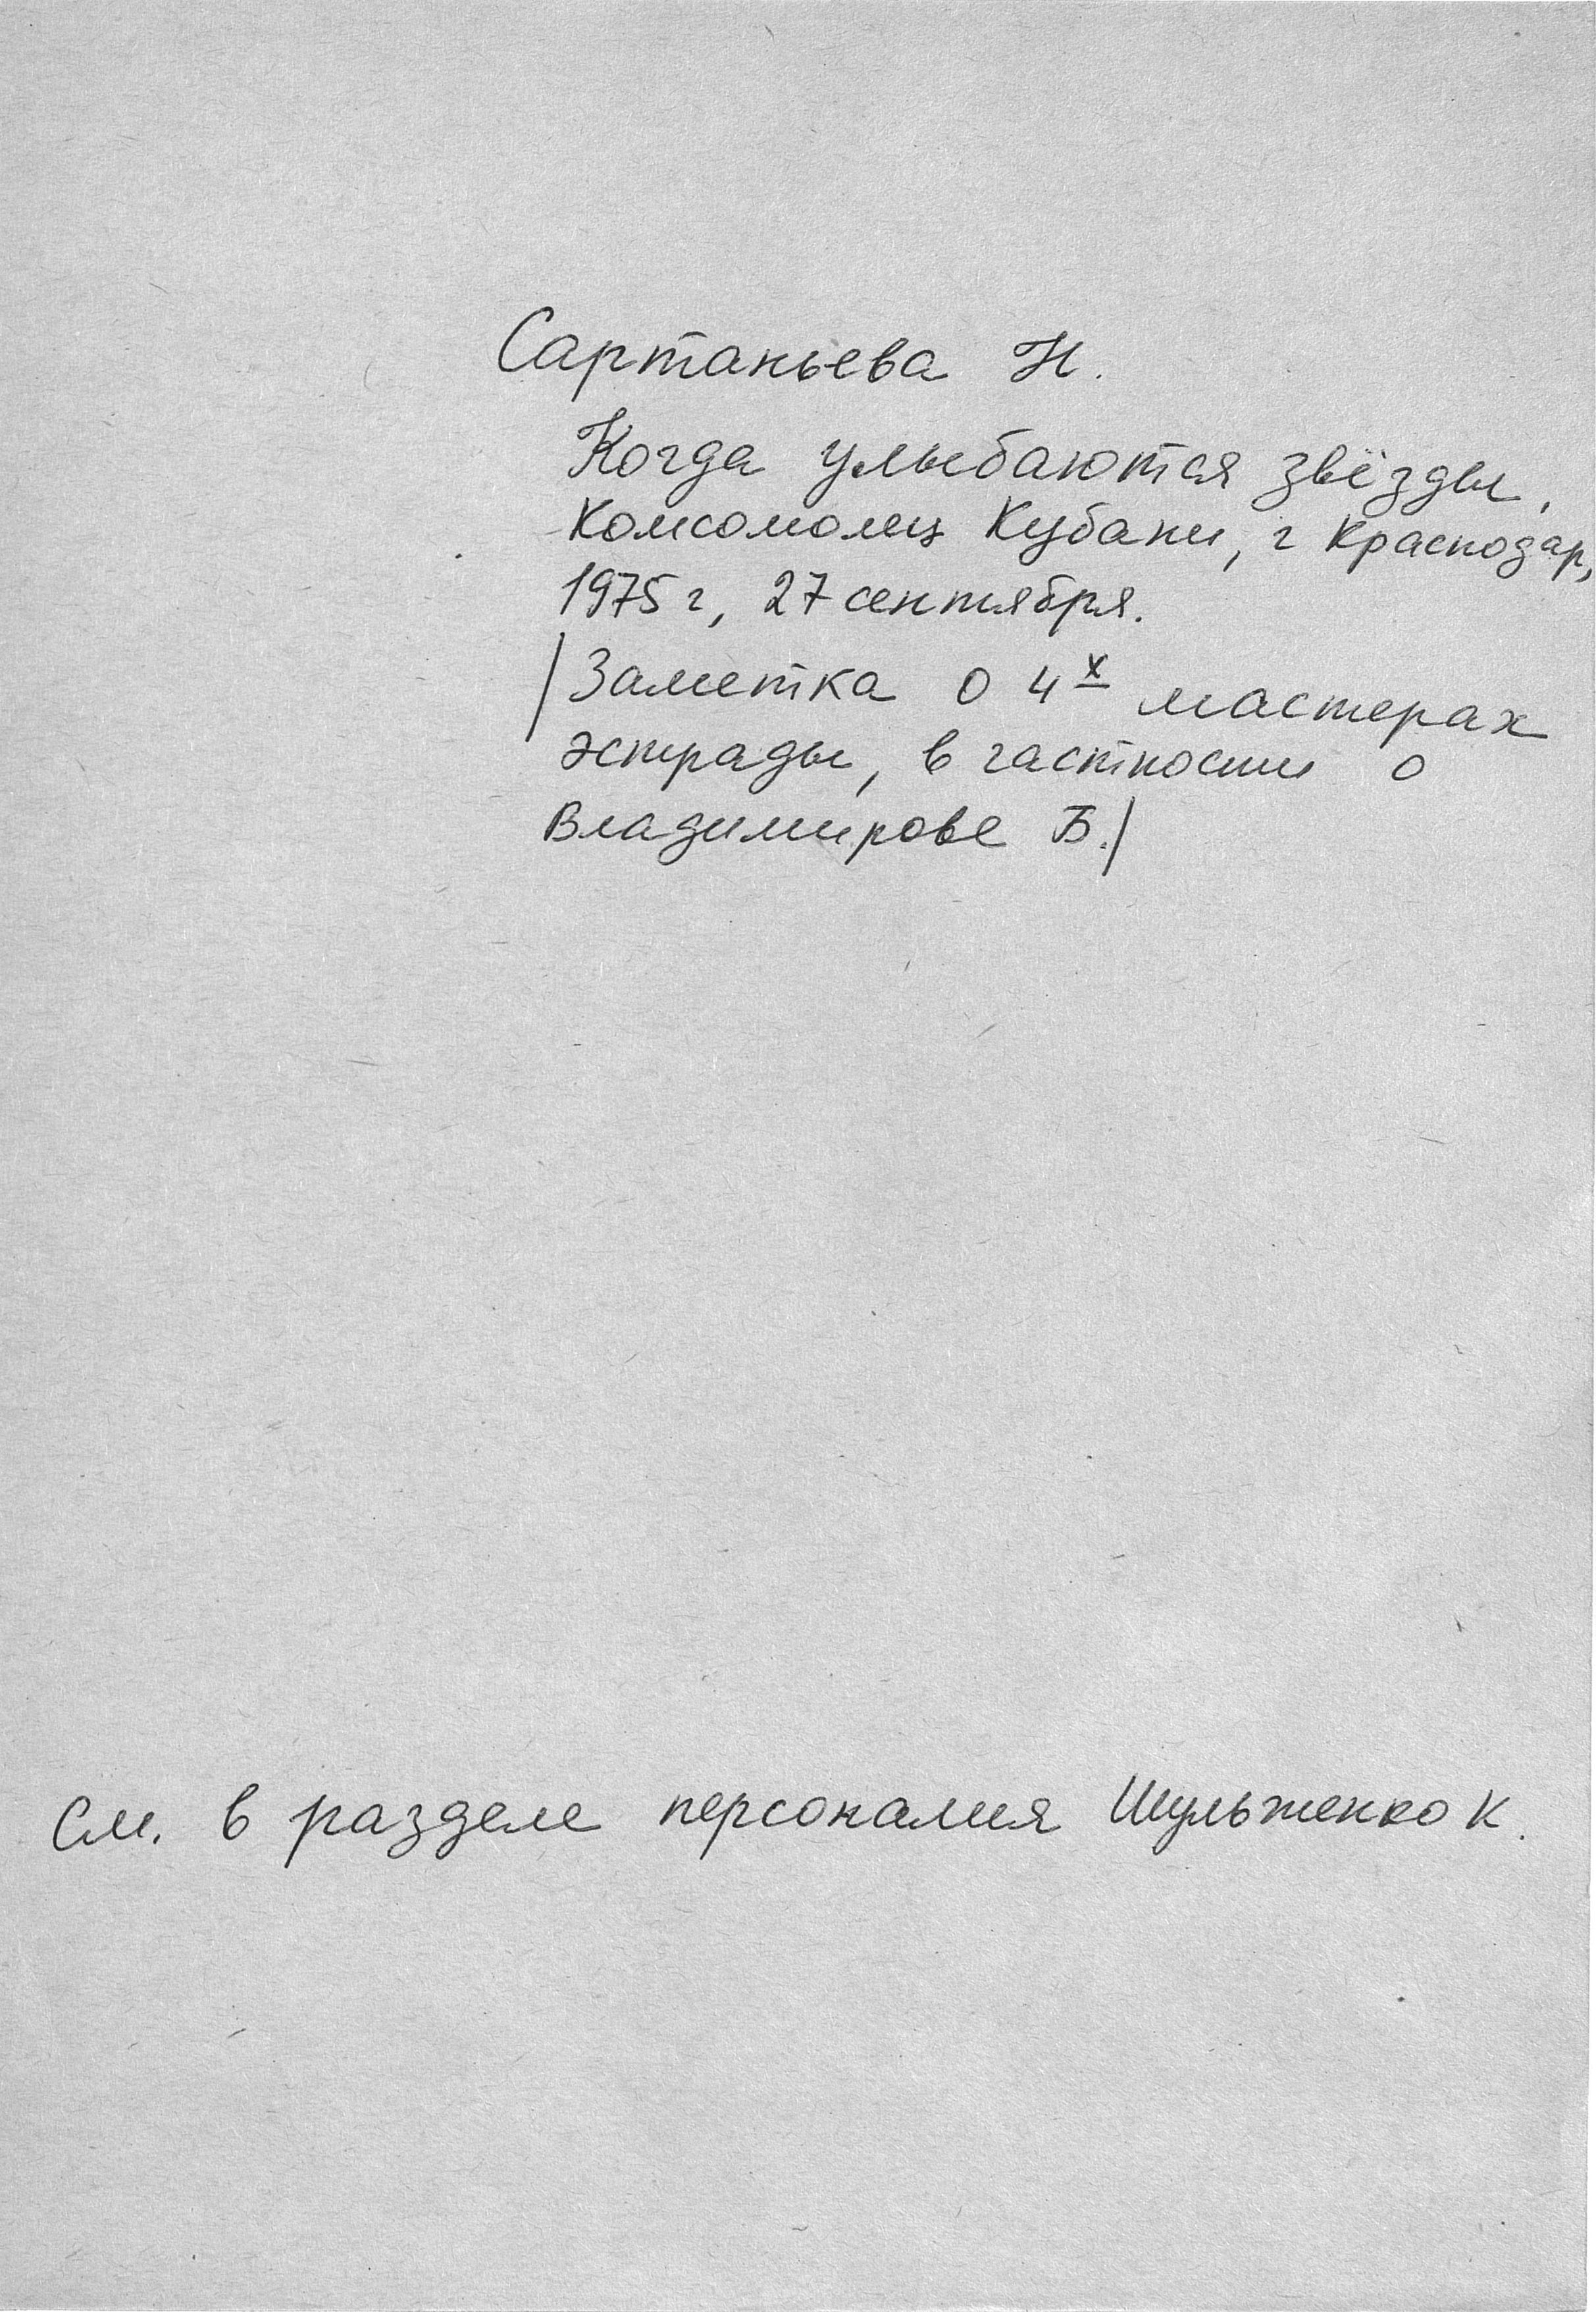 Сартаньева Н.
Когда улыбаются звёзды.
Комсомолец Кубани, г Краснодар,
1975 г, 27 сентября.
/Заметка о 4х мастерах
эстрады, в частности о
Владимирове Б./
См. в разделе персоналия Шульженко К.